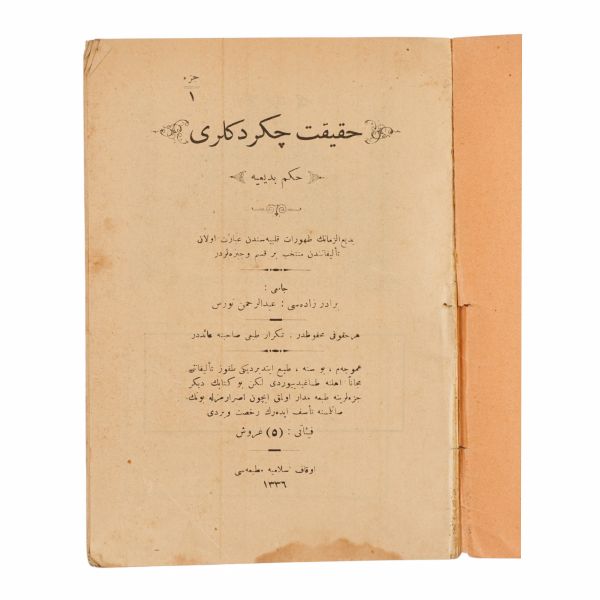 جزء
١
حقيقت چكردكلری
حكم بديعيه
بديع الزمانك ظهورات قلبيه سندن عبارت اولان
تأليفاتندن منتخب بر قسم وجيزه لردر
جامعی :
برادر زاده سی : عبدالرحمن نورس
هر حقوقی محفوظدر . تكرار طبعی صاحبنه عائددر
عموجه م ، بو سنه ، طبع ايتديرديكی طقوز تأليفاتنی
مجاناً اهلنه طاغيديیوردی لكن بو كتابك ديكر
جزءلرينه طبعه مدار اولمق ايچون اصرارمزله بونك
صاتلمسنه تأسف ايده رك رخصت ويردی
فيئاتی : (٥) غروش
اوقاف اسلاميه مطبعه سی
١٣٣٦